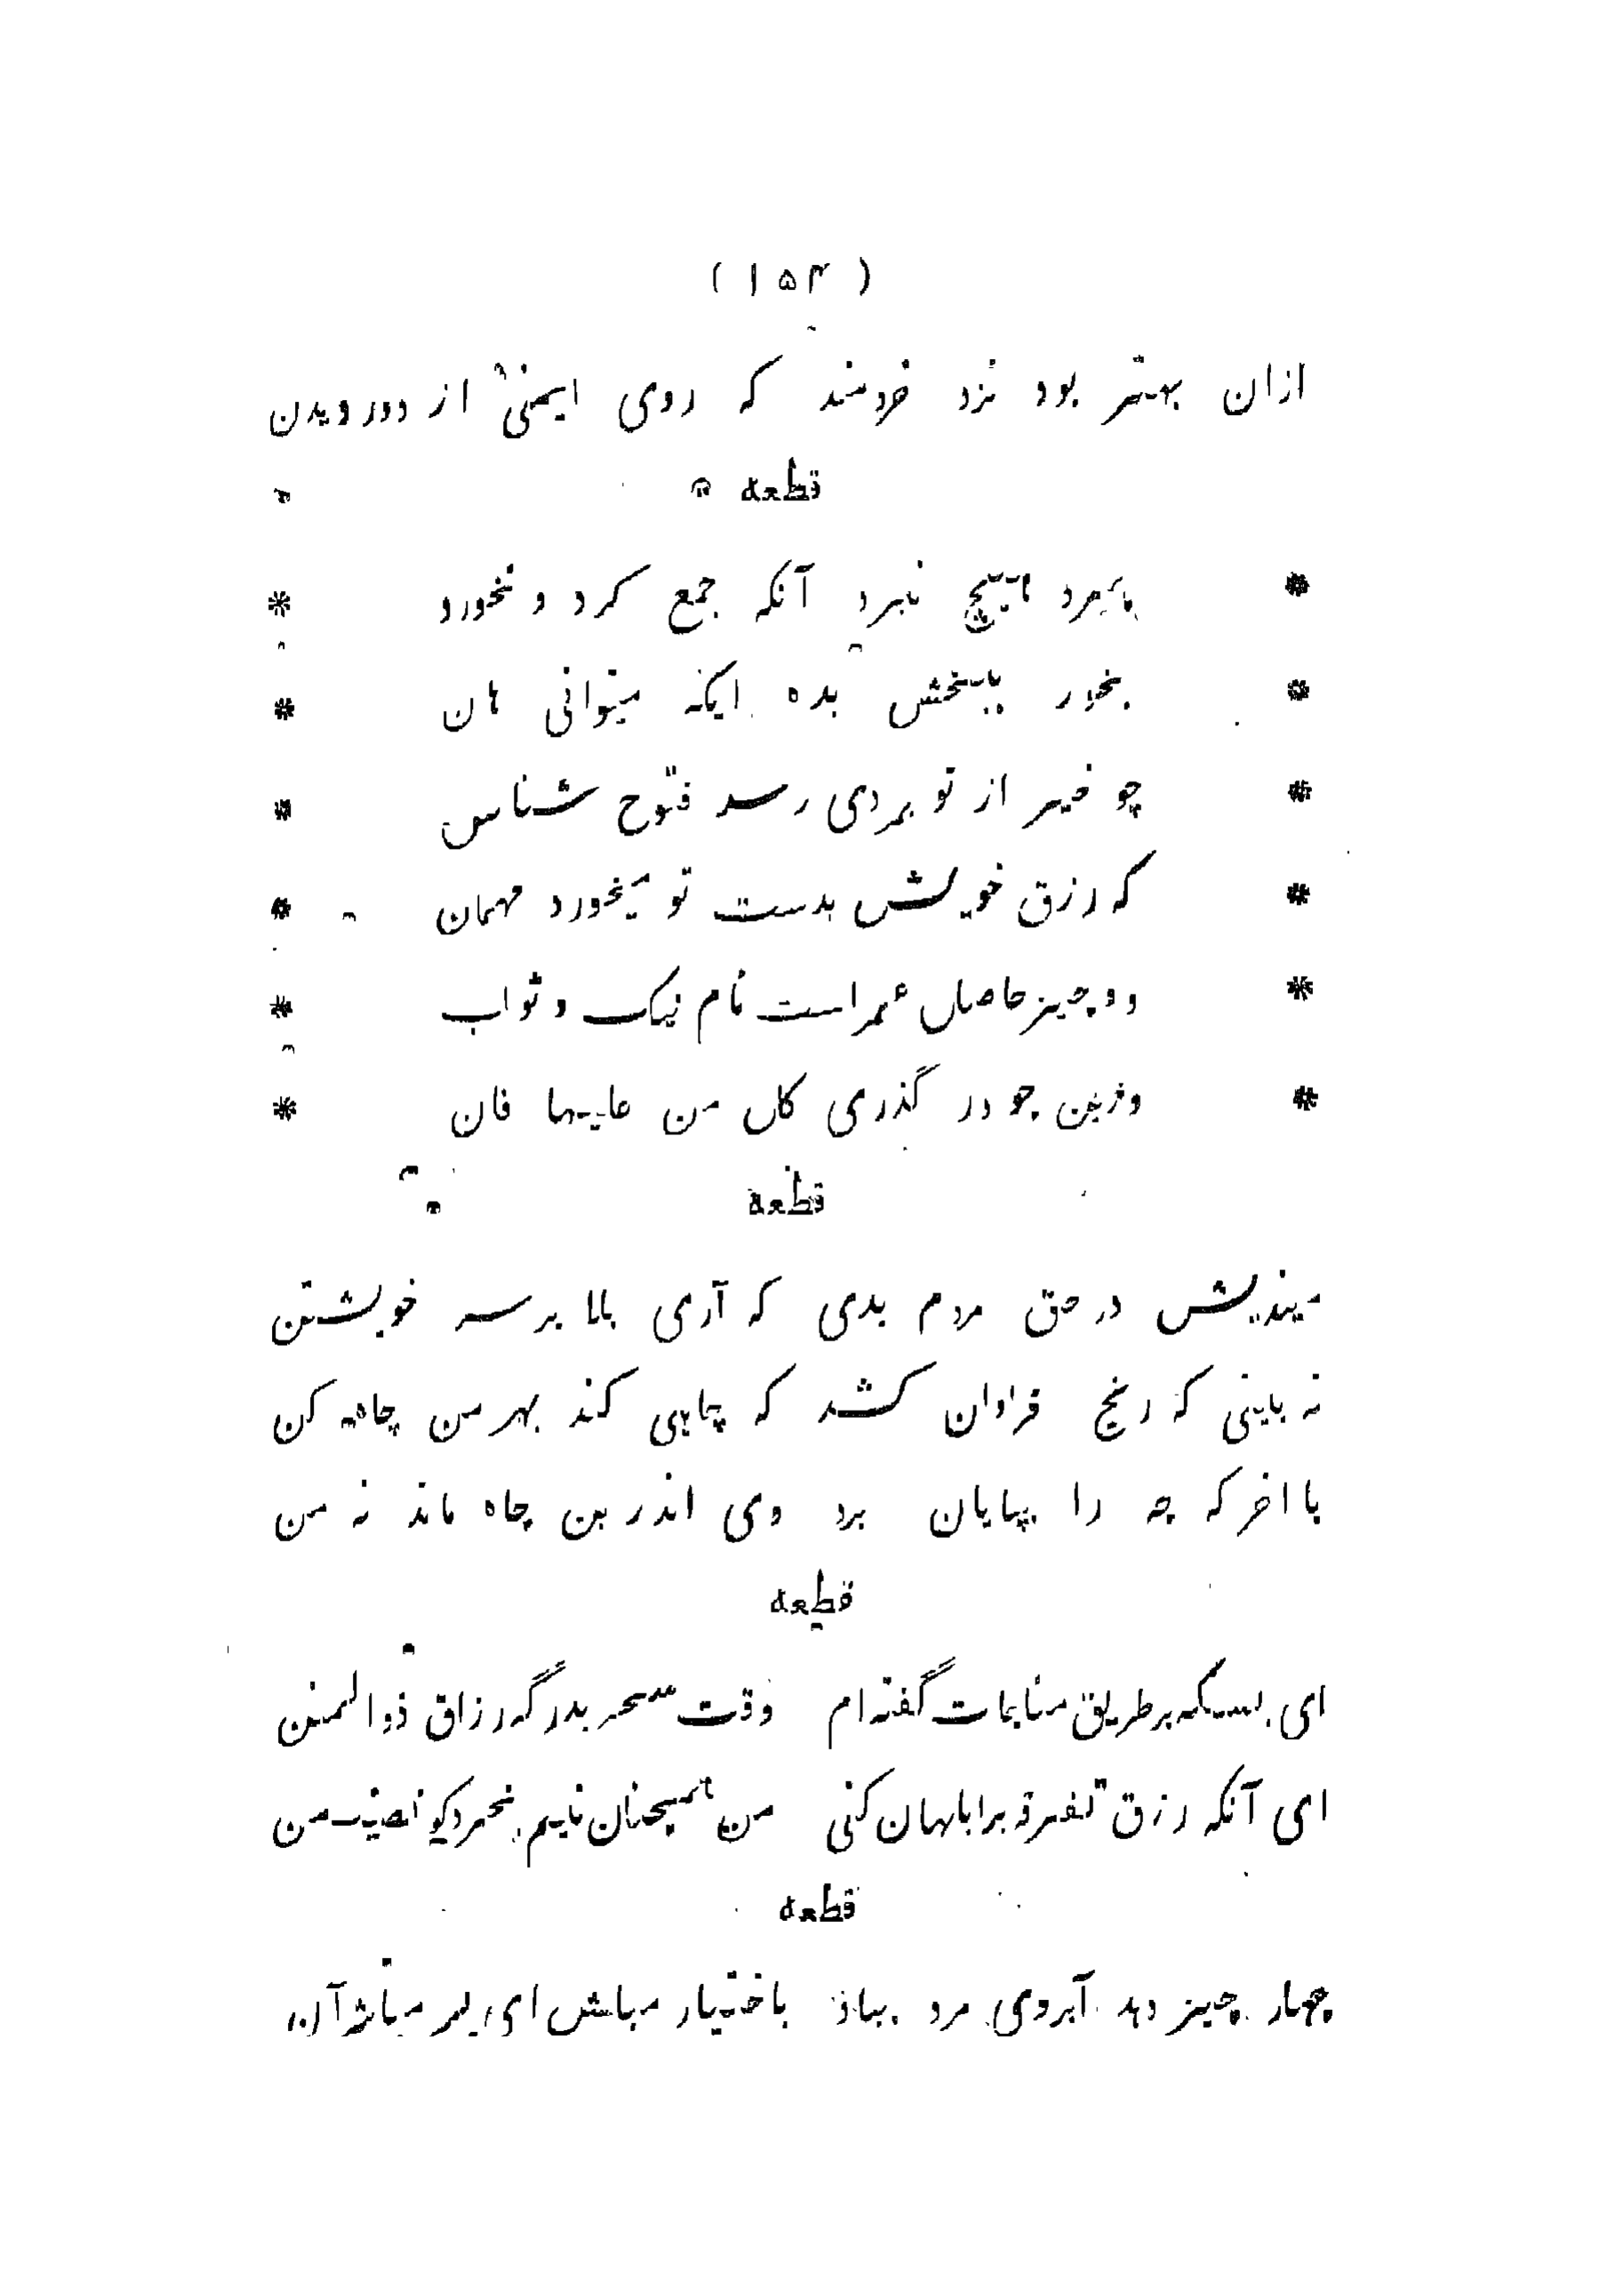 ( ۱۵۴ )
ازان بهتر بود نزد خردمند که روی ایمنی از دور دیدن
قطعه
بمرد هیچ نبرد آنکه جمع کرد و نخورد
بخور ببخش بده ایکه میتوانی هان
چو خیر از تو بمردی رسد فتوح شناس
که رزق خویش بدست تو میخورد مهمان
دو چیز حاصل عمر است نام نیک و ثواب
وزین چو در گذری کل من علیها فان
قطعه
میندیش در حق مردم بدی که آری بلا بر سر خویشتن
نه بینی که رنج فراوان کشد که چاهی کند بهر من چاه کن
با اخر که چه را بپایان برد وی اندر بن چاه ماند نه من
قطعه
ای بسکه بر طریق مناجات گفته ام وقت سحر بدرگه رزاق ذوالمنن
ای آنکه رزق تفرقه بر ابلهان کنی من همچنان نایم بخرد کو نصیب من
قطعه
چهار چیز دهد آبروی مرد بباد باختیار مباش ای پسر مباشر آن